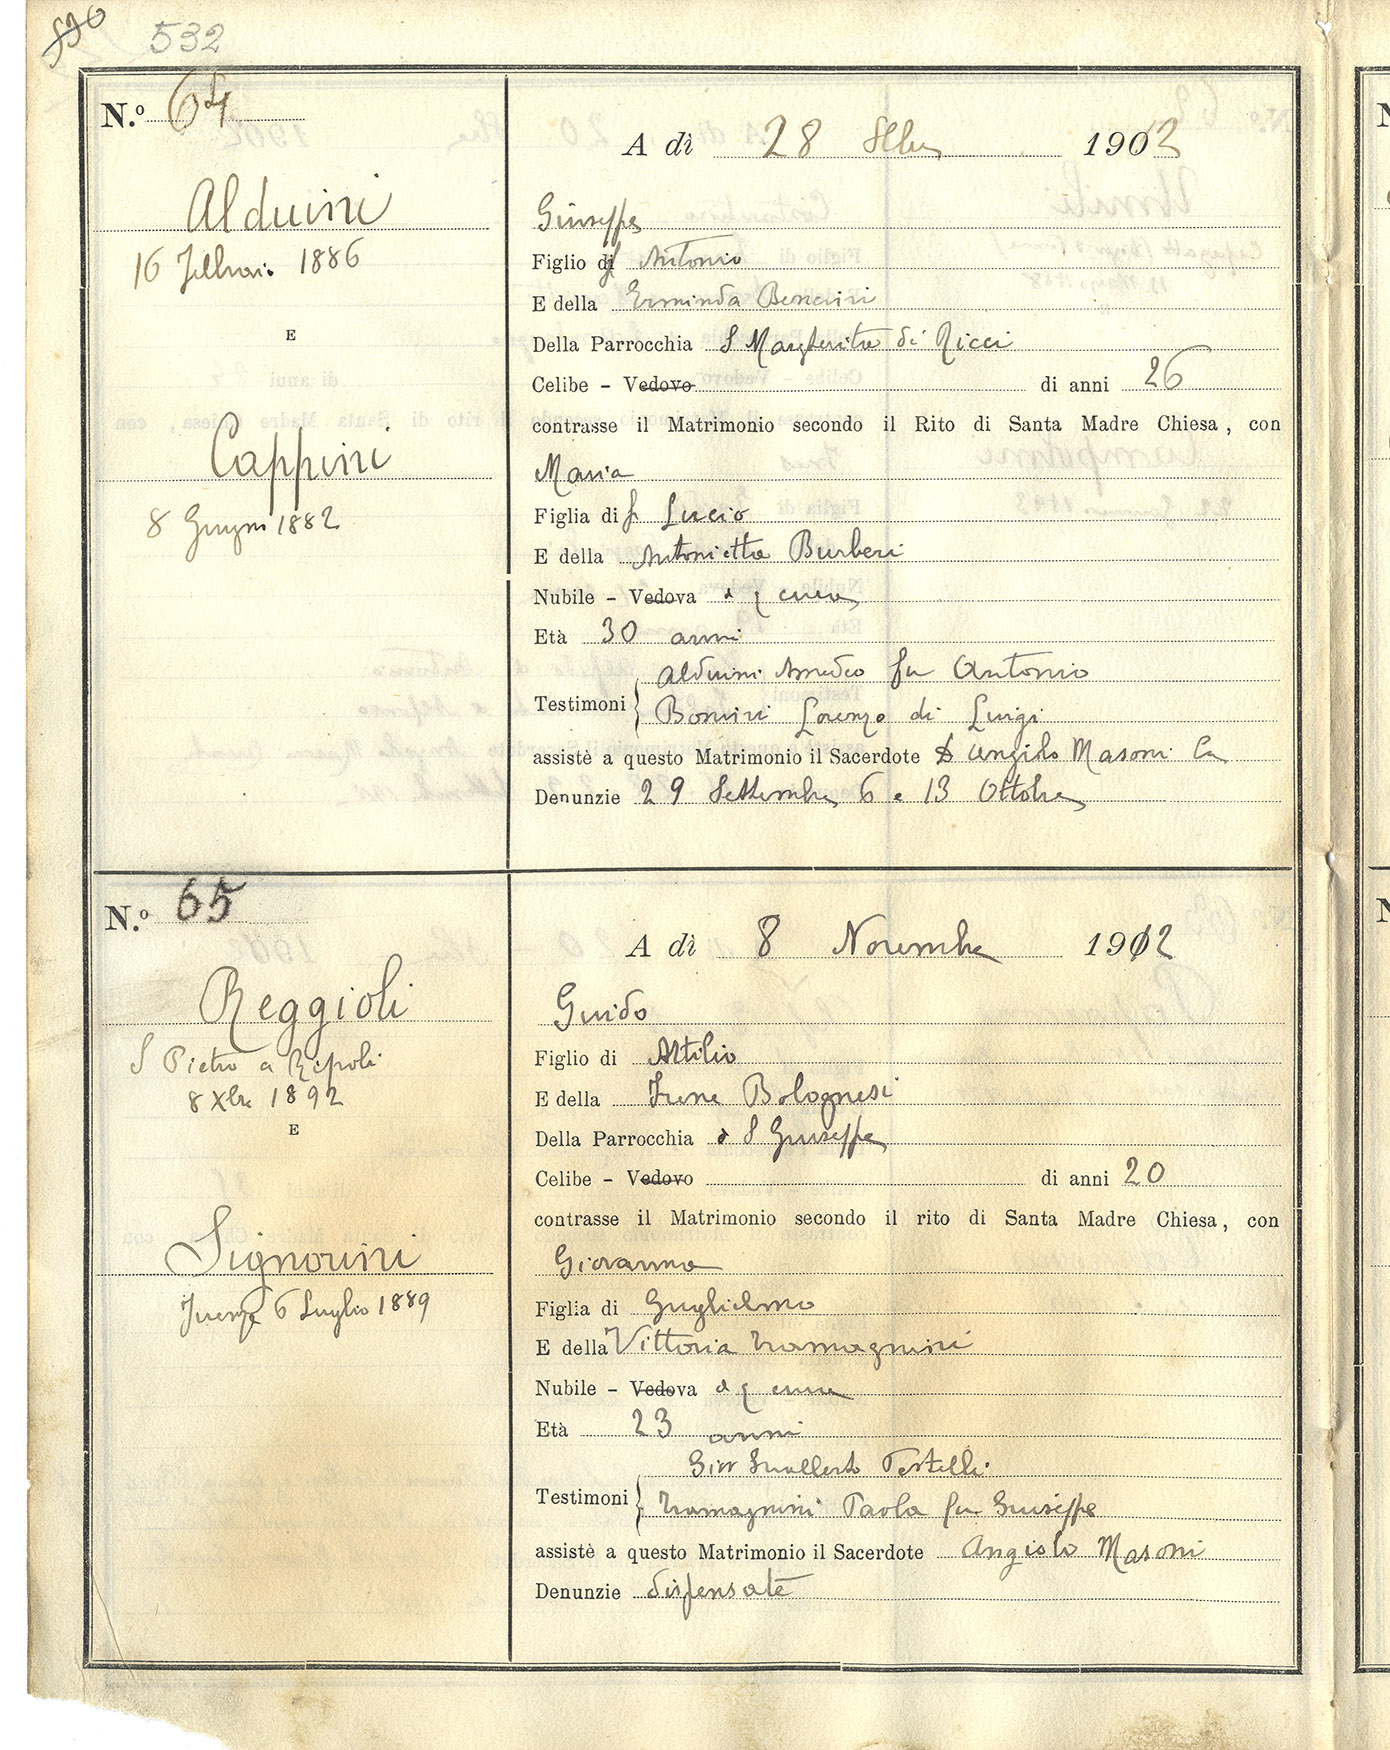 532
N.º 64
A dì 28 8bre 1902
Alduini
16 Febbraio 1886
Giuseppe
Figlio di f Antonio
E della Erminda Bencini
E
Della Parrocchia S Margherita di Ricci
Celibe - Vedovo di anni 26
contrasse il Matrimonio secondo il Rito di Santa Madre Chiesa, con
Cappini
8 Giugno 1882
Maria
Figlia di f Lucio
E della Antonietta Burberi
Nubile - Vedova d q cura
Età 30 anni
Testimoni Alduini Amedeo fu Antonio
Bonini Lorenzo di Luigi
assistè a questo Matrimonio il Sacerdote D Angiolo Masoni
Denunzie 29 Settembre 6 e 13 Ottobre
N.º 65
A dì 8 Novembre 1912
Reggioli
S Pietro a Ripoli
8 Xbre 1892
Guido
Figlio di Attilio
E della Irene Bolognesi
E
Della Parrocchia d S Giuseppe
Celibe - Vedovo di anni 20
contrasse il Matrimonio secondo il rito di Santa Madre Chiesa, con
Signorini
Firenze 6 Luglio 1889
Giovanna
Figlia di Guglielmo
E della Vittoria Romagnini
Nubile - Vedova d q cura
Età 23 anni
Testimoni Gio Gualberto Testelli
Romagnini Paola fu Giuseppe
assistè a questo Matrimonio il Sacerdote Angiolo Masoni
Denunzie dispensate